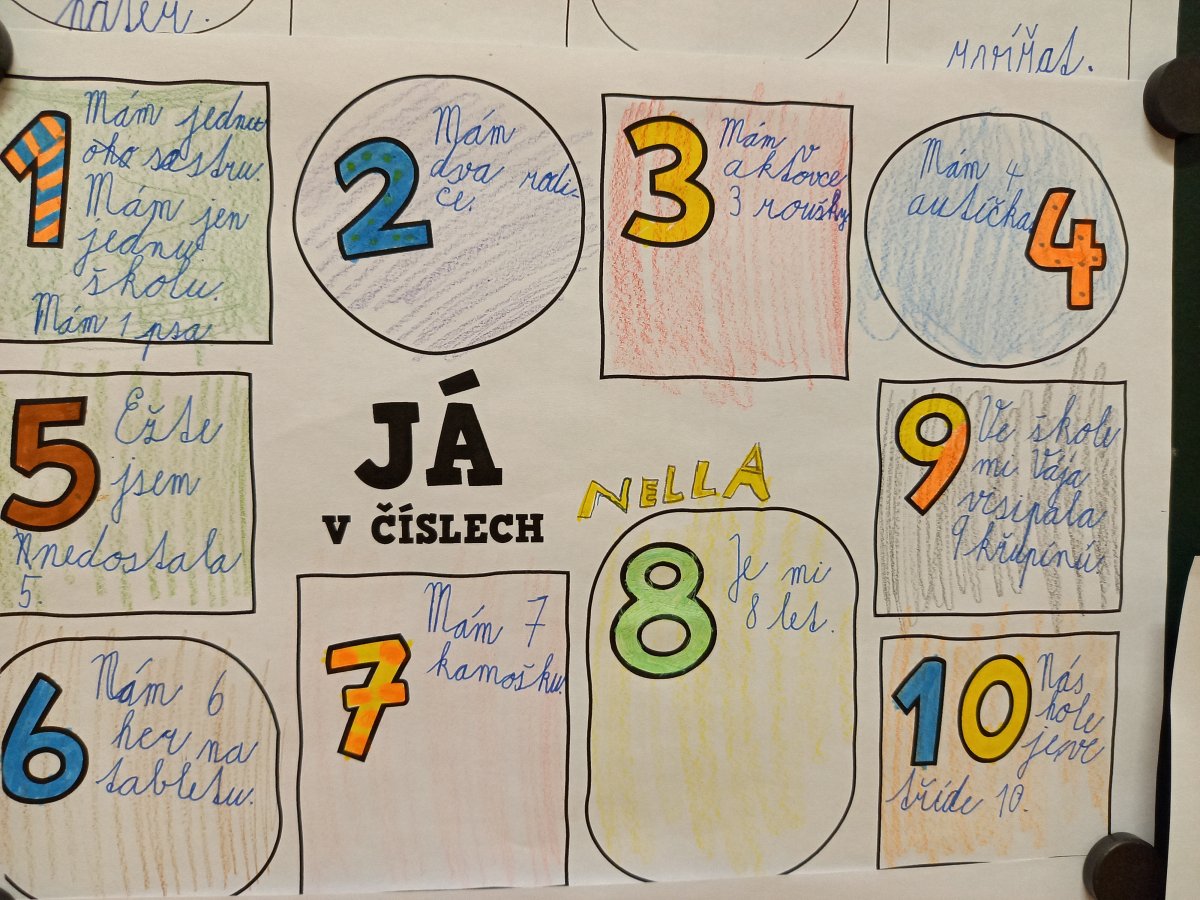 náser.
zvířat.
1
Mám jednu
sestru.
Mám jen
jednu
školu.
Mám 1 psa
2
Mám
dva rodi-
če.
3
Mám v
aktovce
3 roušky
Mám 4
autíčka
4
5
Ežte
jsem
nedostala
5.
JÁ
V ČÍSLECH
NELLA
9
Ve škole
mi Vája
vrsipala
9 křupínů
6
Mám 6
her na
tabletu.
7
Mám 7
kamošku.
8
Je mi
8 let.
10
Nás
hole
je ve
tříde 10.